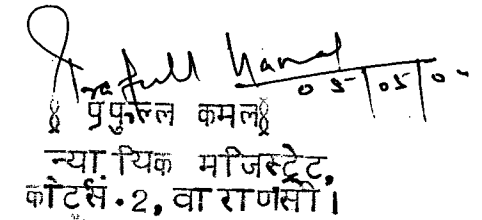 Prafull Kamal
05/05/0
൫ प्रफुल्ल कमल൫
न्यायिक मजिस्ट्रेट,
कोर्टसं.2, वाराणसी।